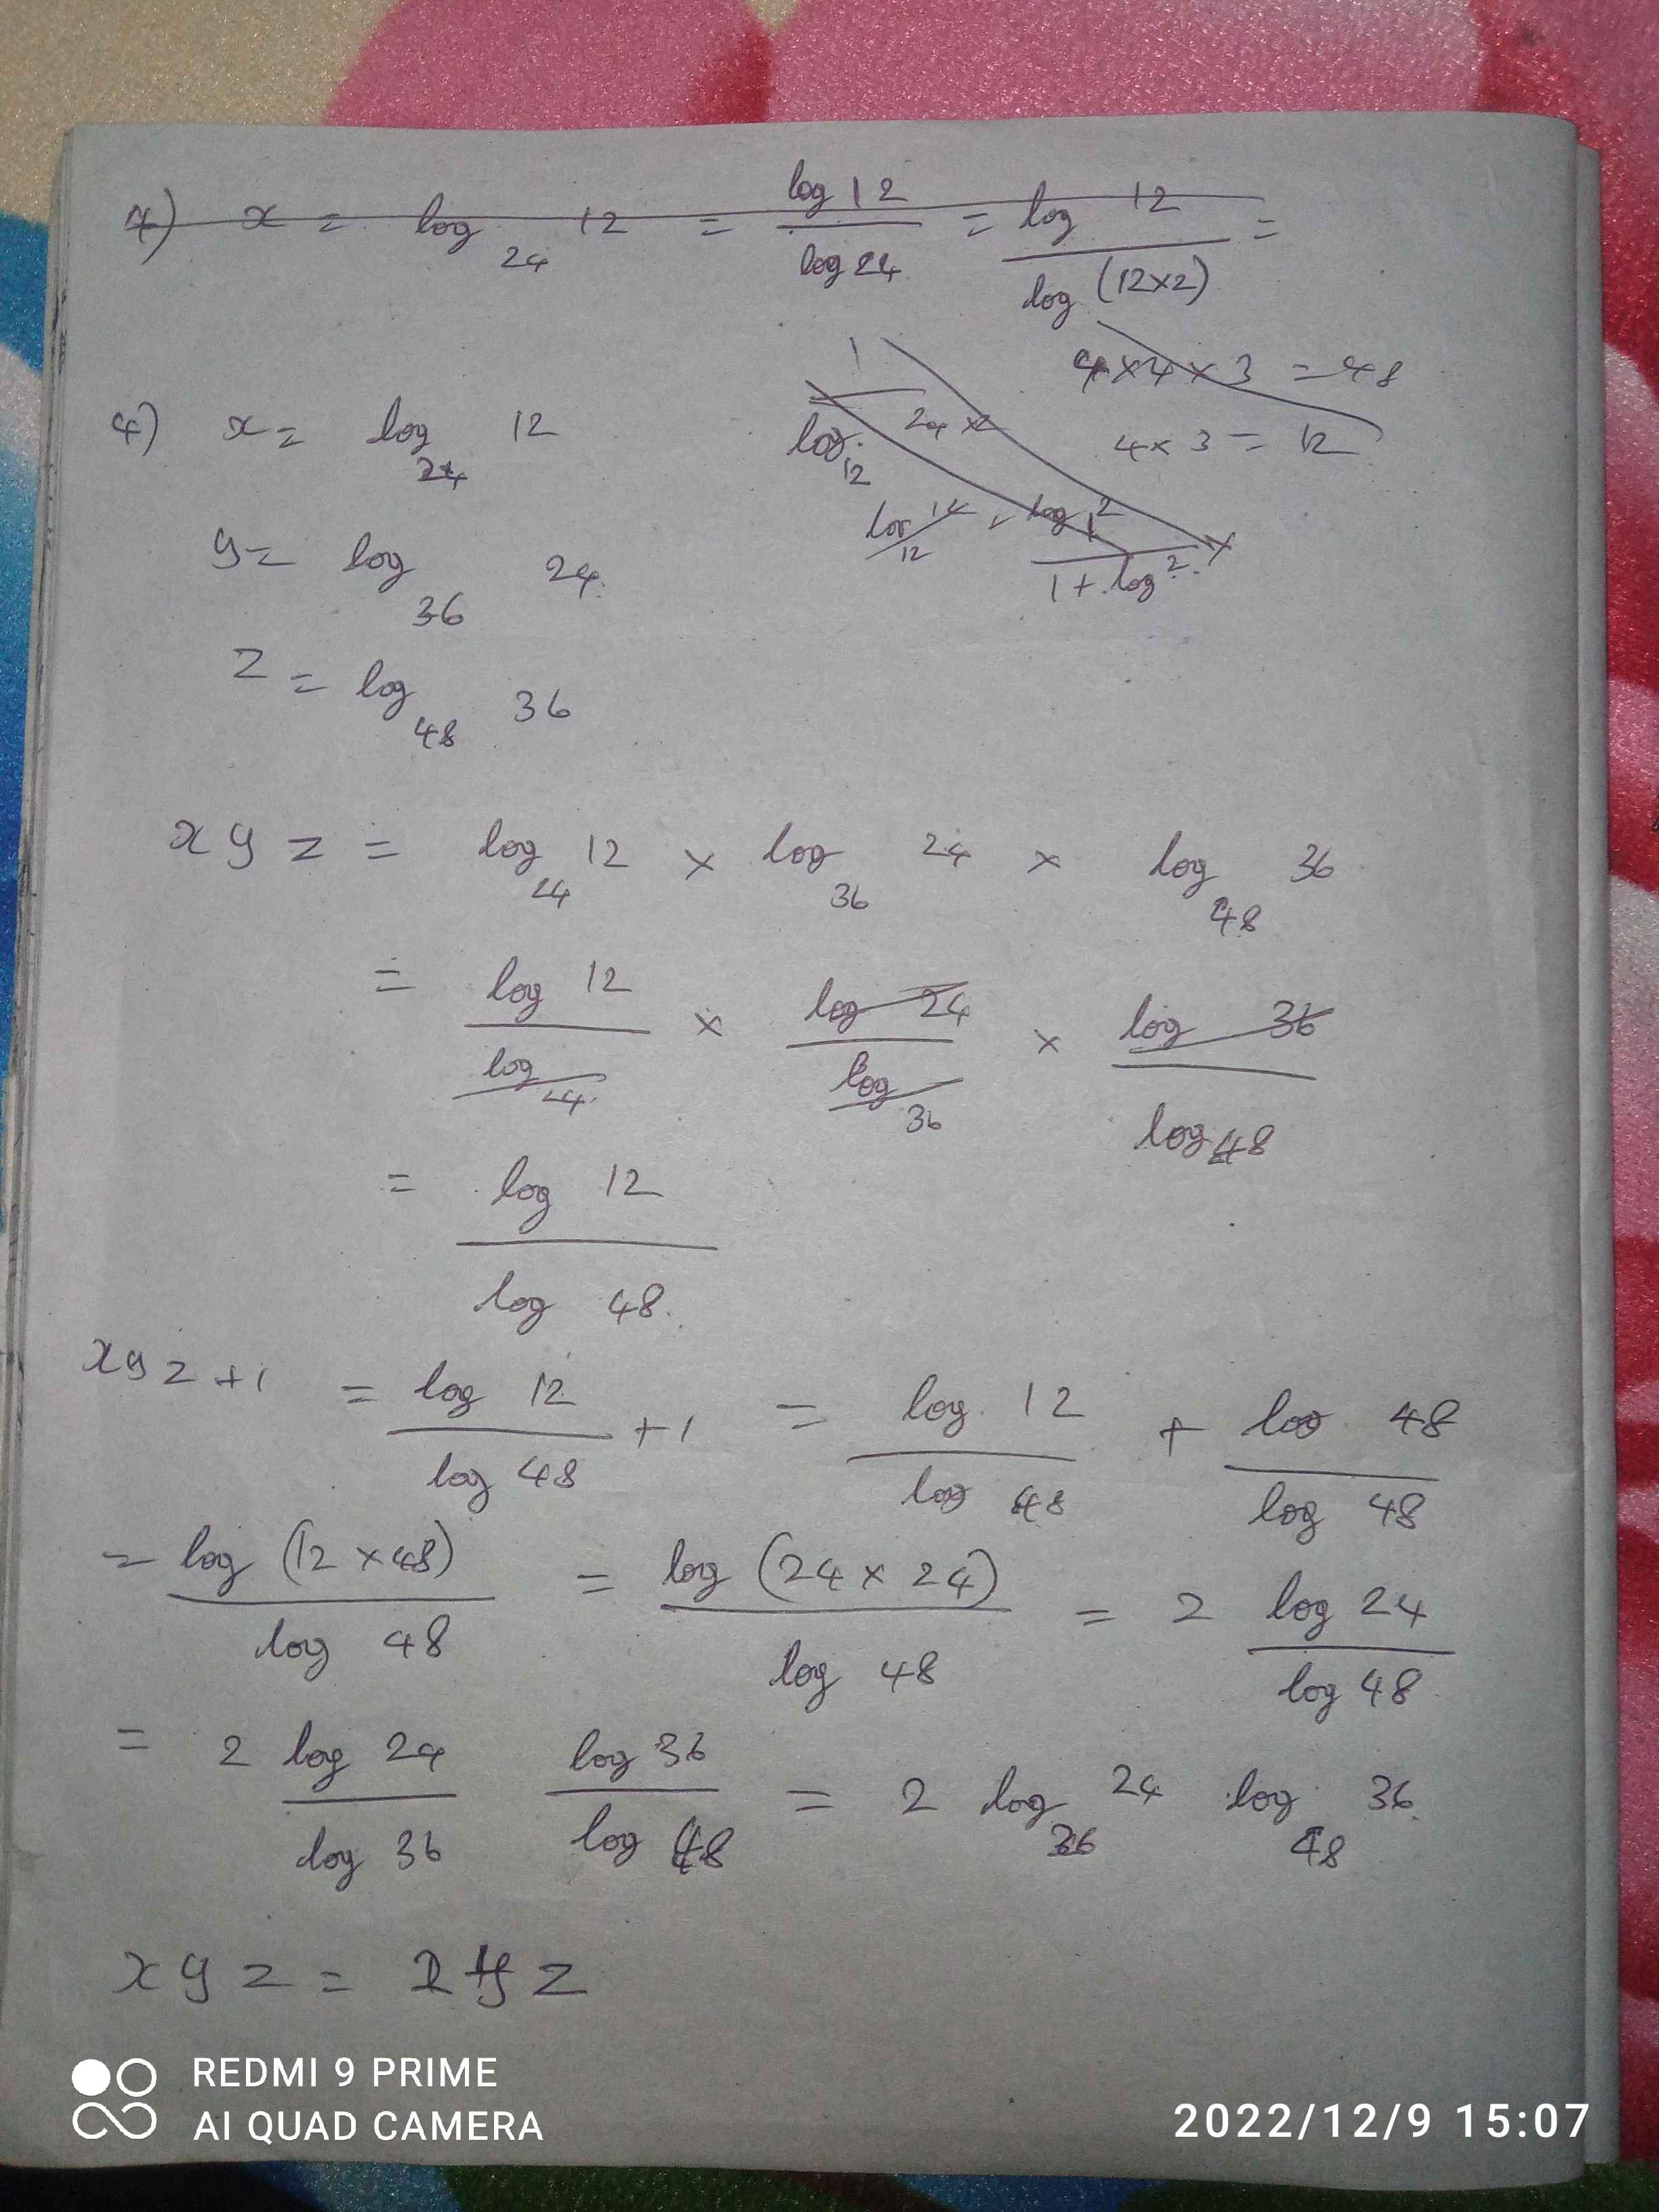 4) x = log₂₄ 12 = log 12 / log 24 = log 12 / log (12×2) =
4×4×3 = 48
4×3 = 12
4) x = log₂₄ 12
y = log₃₆ 24
z = log₄₈ 36
1 + log 2
xyz = log₂₄ 12 × log₃₆ 24 × log₄₈ 36
= log 12 / log 24 × log 24 / log 36 × log 36 / log 48
= log 12 / log 48
xyz+1 = log 12 / log 48 + 1 = log 12 / log 48 + log 48 / log 48
= log (12×48) / log 48 = log (24×24) / log 48 = 2 log 24 / log 48
= 2 log 24 / log 36 log 36 / log 48 = 2 log₃₆ 24 log₄₈ 36
xyz = 2yz
REDMI 9 PRIME
AI QUAD CAMERA
2022/12/9 15:07